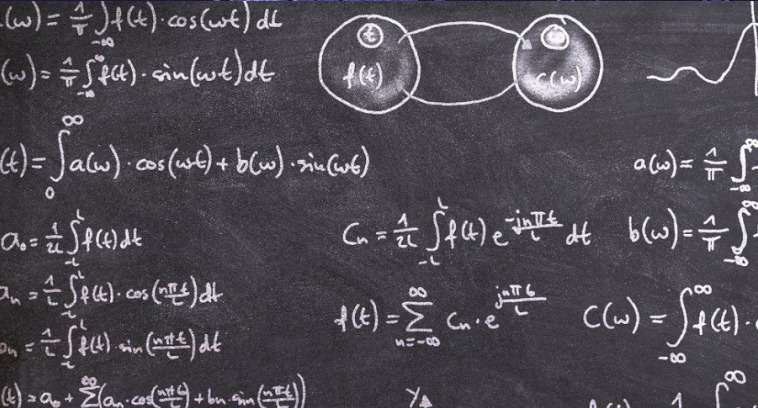 (ω) = 1/π ∫_{-∞} f(t) · cos(ωt) dt
(ω) = 1/π ∫_{-∞}^{∞} f(t) · sin(ωt) dt
t
f(t)
C(ω)
(t) = ∫_0^∞ a(ω) · cos(ωt) + b(ω) · sin(ωt)
a(ω) = 1/π ∫_{-∞}^{∞}
a₀ = 1/2L ∫_{-L}^{L} f(t) dt
Cₙ = 1/2L ∫_{-L}^{L} f(t) e^{-jnπt/L} dt
b(ω) = 1/π ∫_{-∞}^{∞}
aₙ = 1/L ∫_{-L}^{L} f(t) · cos(nπt/L) dt
f(t) = ∑_{n=-∞}^{∞} Cₙ · e^{jnπt/L}
C(ω) = ∫_{-∞}^{∞} f(t) ·
bₙ = 1/L ∫_{-L}^{L} f(t) · sin(nπt/L) dt
(t) = a₀ + ∑^{∞} (aₙ · cos(nπt/L) + bₙ · sin(nπt/L))